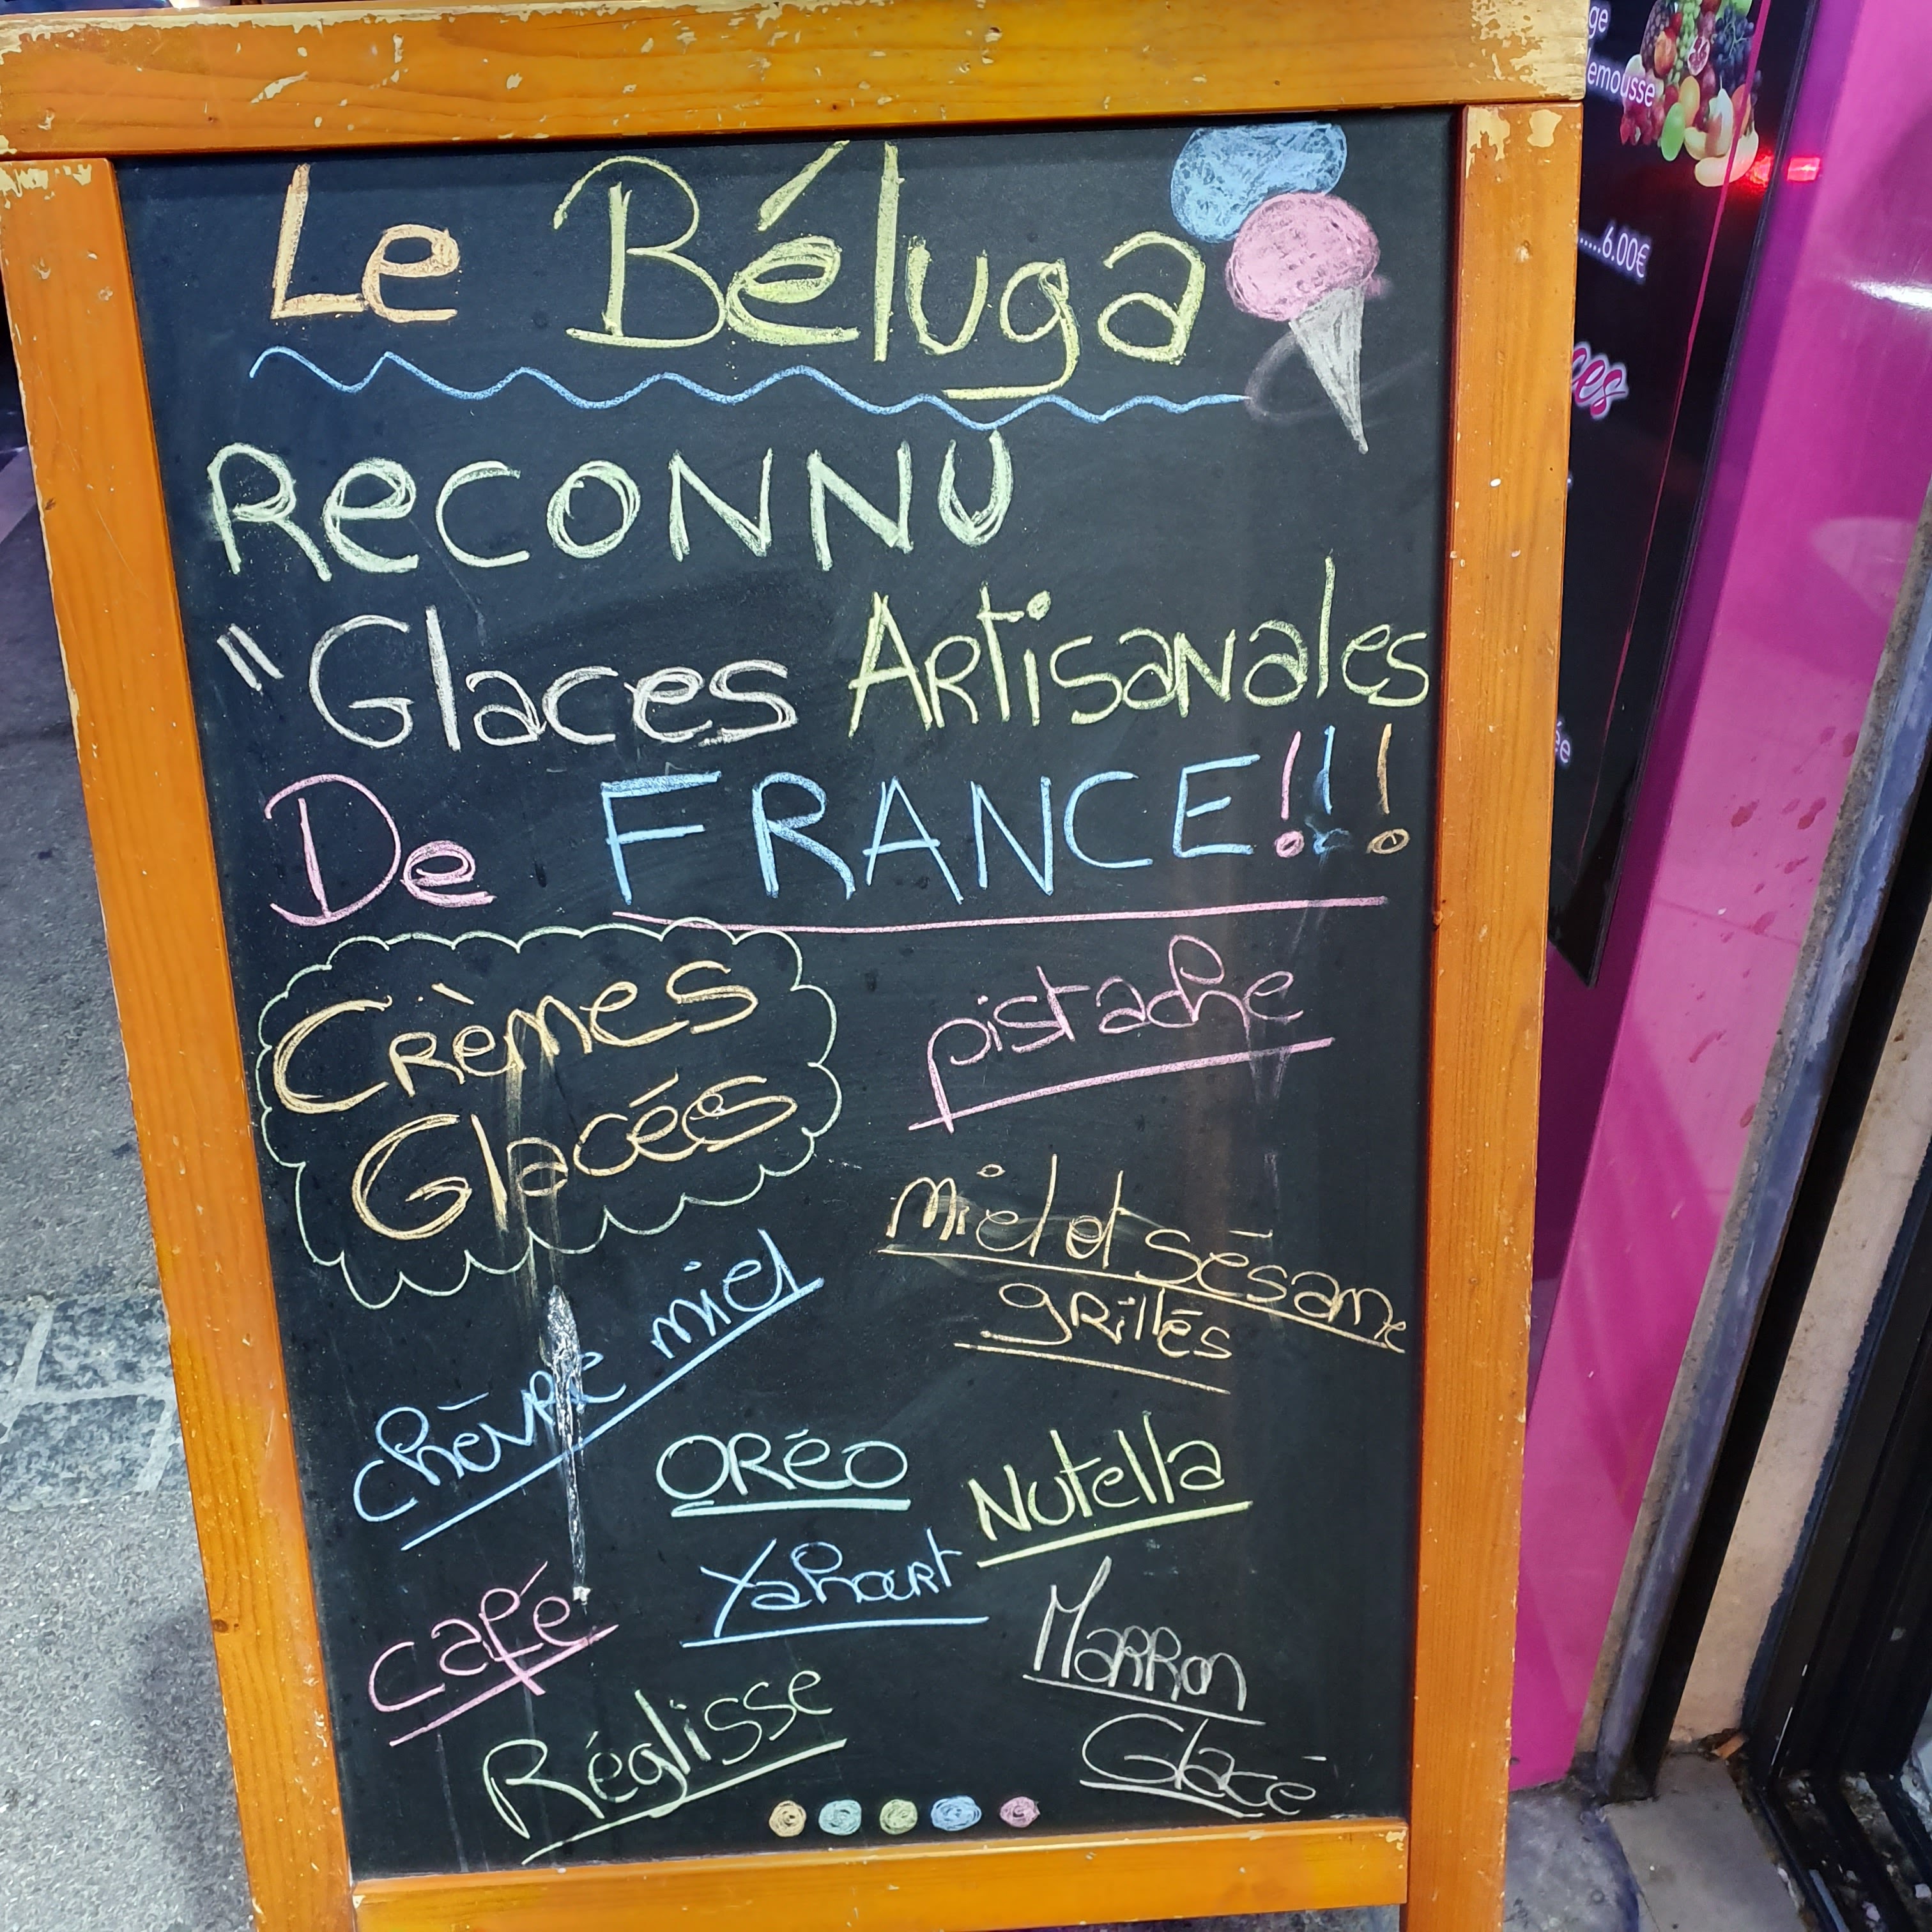 Le Béluga
RECONNU
"Glaces Artisanales
De FRANCE!!!
Crèmes
Glacés
pistache
miel et sésame
grillés
chèvre miel
Oréo
Nutella
café
Yahourt
Marron
Glacé
Réglisse
ge
emousse
.....6.00€
ces
ée